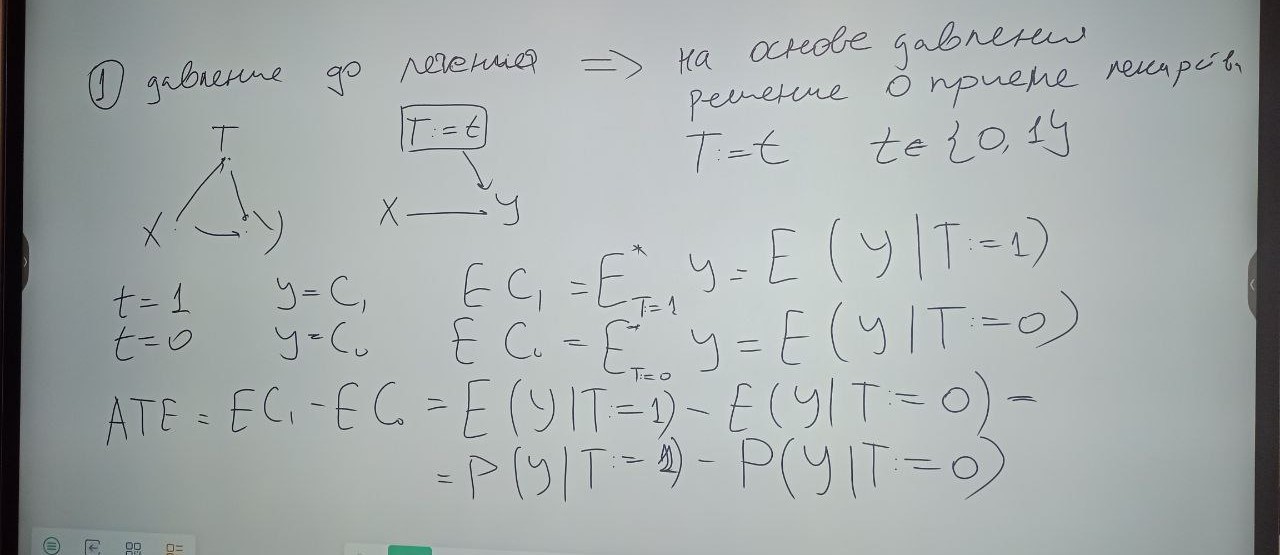 ① давление до лечения => на основе давления
решение о приеме лекарств
T:=t t∈{0,1}
T
T:=t
X Y
X Y
t=1 y=C₁ E C₁ = E*_{T:=1} y = E(y|T:=1)
t=0 y=C₀ E C₀ = E*_{T:=0} y = E(y|T:=0)
ATE = EC₁ - EC₀ = E(y|T:=1) - E(y|T:=0) =
= P(y|T:=1) - P(y|T:=0)